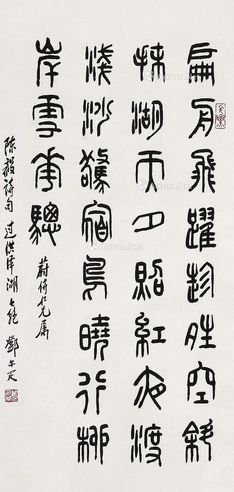 扁舟飛躍趁夝空斜
抹湖天夕照紅夜渡
淺沙驚宿鳥曉行柳
岸雪華驄
蔚仁兄屬
陳毅詩句過洪澤湖七絕 鄧